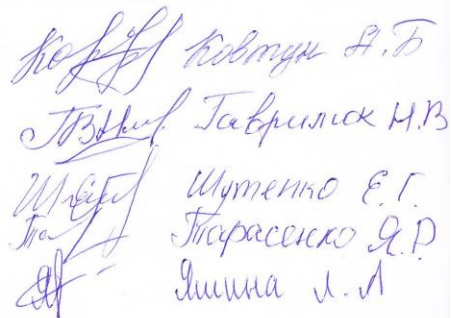 Ковтун Н.Б
Гаврилюк Н.В
Шутенко Е.Г.
Тарасенко Я.Р
Яшина Л.Л